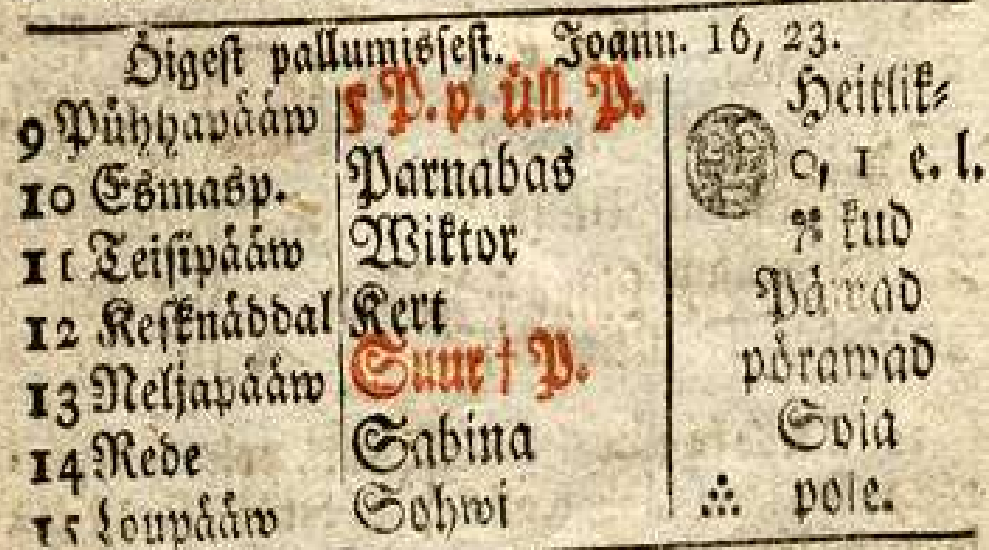 Öigest pallumissest. Joann. 16, 23.
9 Pühhapääw 5 P. p. üll. P. Heitlik⸗
10 Esmasp. Parnabas 0, 1 e. l.
11 Teisipääw Wiktor kud
12 Kesknäddal Kert Päwad
13 Neljapääw Suur † P. pörawad
14 Rede Sabina Soia
15 Loupääw Sohwi pole.